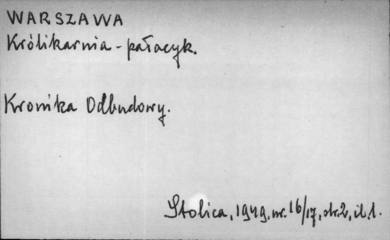 WARSZAWA
Królikarnia - pałacyk.
Kronika Odbudowy.
Stolica, 1949, nr. 16/17, str. 2, il. 1.